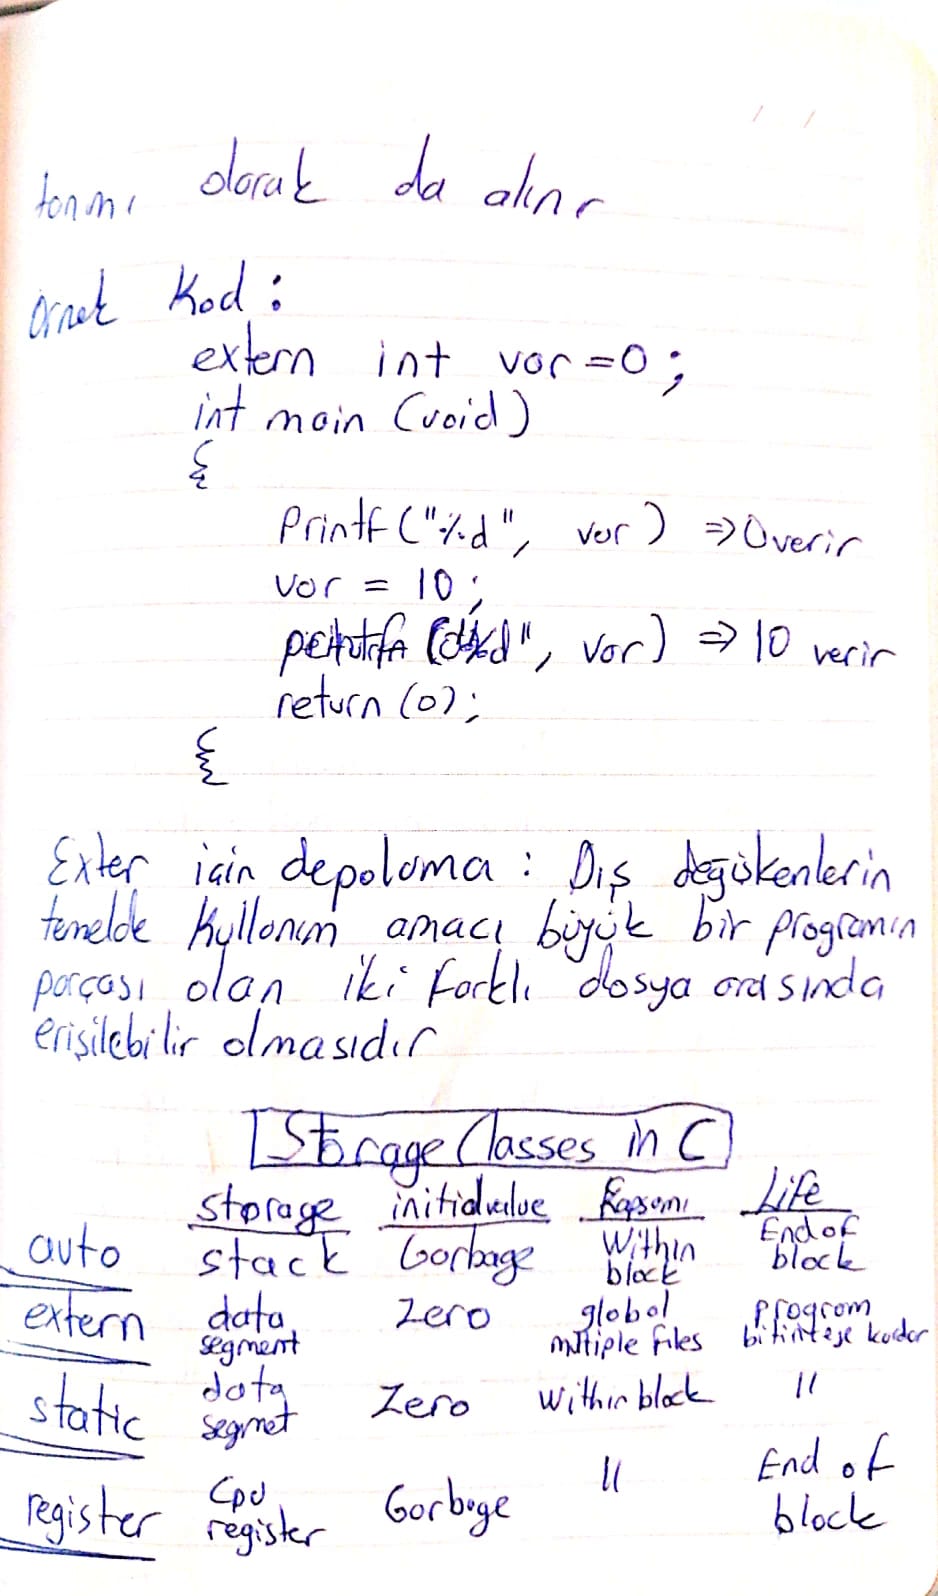 tanımı olarak da alınır
Örnek Kod :
extern int var = 0 ;
int main (void)
{
Printf ("%d", var) => 0 verir
var = 10 ;
("%d", var) => 10 verir
return (0) ;
{
Exter için depolama : Dış değişkenlerin
temelde kullanım amacı büyük bir programın
parçası olan iki farklı dosya arasında
erişilebilir olmasıdır
Storage Classes in C
storage initialvalue Kapsamı Life
auto stack Garbage Within block End of block
extern data segment Zero global multiple files program bitinteye kadar
static data segmet Zero Within block "
register Cpu register Garbage " End of block